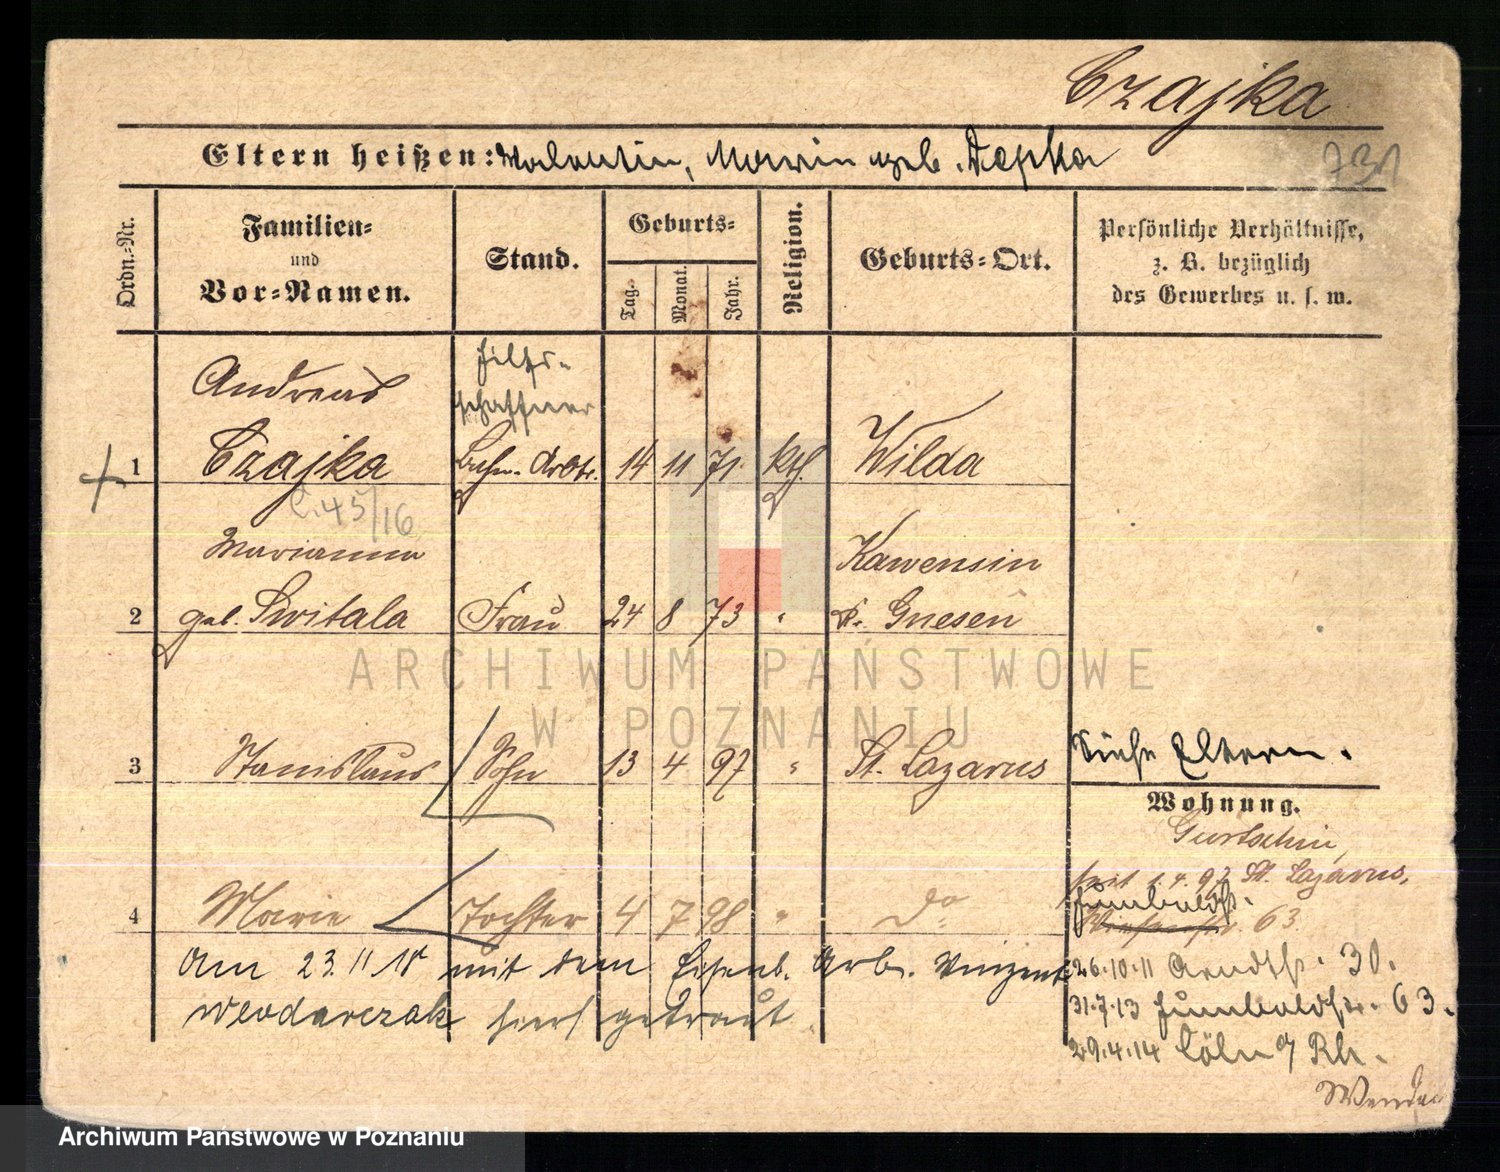 Czajka
Eltern heißen: Valentin, Marie geb. Depka
731
Ordn.-Nr.
Familien- und Vor-Namen.
Stand.
Geburts-
Tag.
Monat.
Jahr.
Religion.
Geburts-Ort.
Persönliche Verhältnisse, z. B. bezüglich des Gewerbes u. s. w.
Hilfs-
schaffner
Andreas
1 Czajka Bahn-Arbtr. 14 11 71 kth. Wilda
C. 45/16
Marianna Kawensin
2 geb. Switala Frau 24 8 73 " Kr. Gnesen
3 Stanislaus Sohn 13 4 97 " St. Lazarus
Siehe Eltern.
Wohnung.
Gurtschin,
seit 1.4.97 St. Lazarus,
Humboldtstr. 63
4 Marie Tochter 4 7 98 " do
Am 23.11.18 mit dem Eisenb. Arb. Vinzent
Wlodarczak hier getraut
26.10.11 Arndtstr. 30.
31.7.13 Humboldtstr. 63.
29.4.14 Cöln a/Rh.
ARCHIWUM PAŃSTWOWE
W POZNANIU
Archiwum Państwowe w Poznaniu